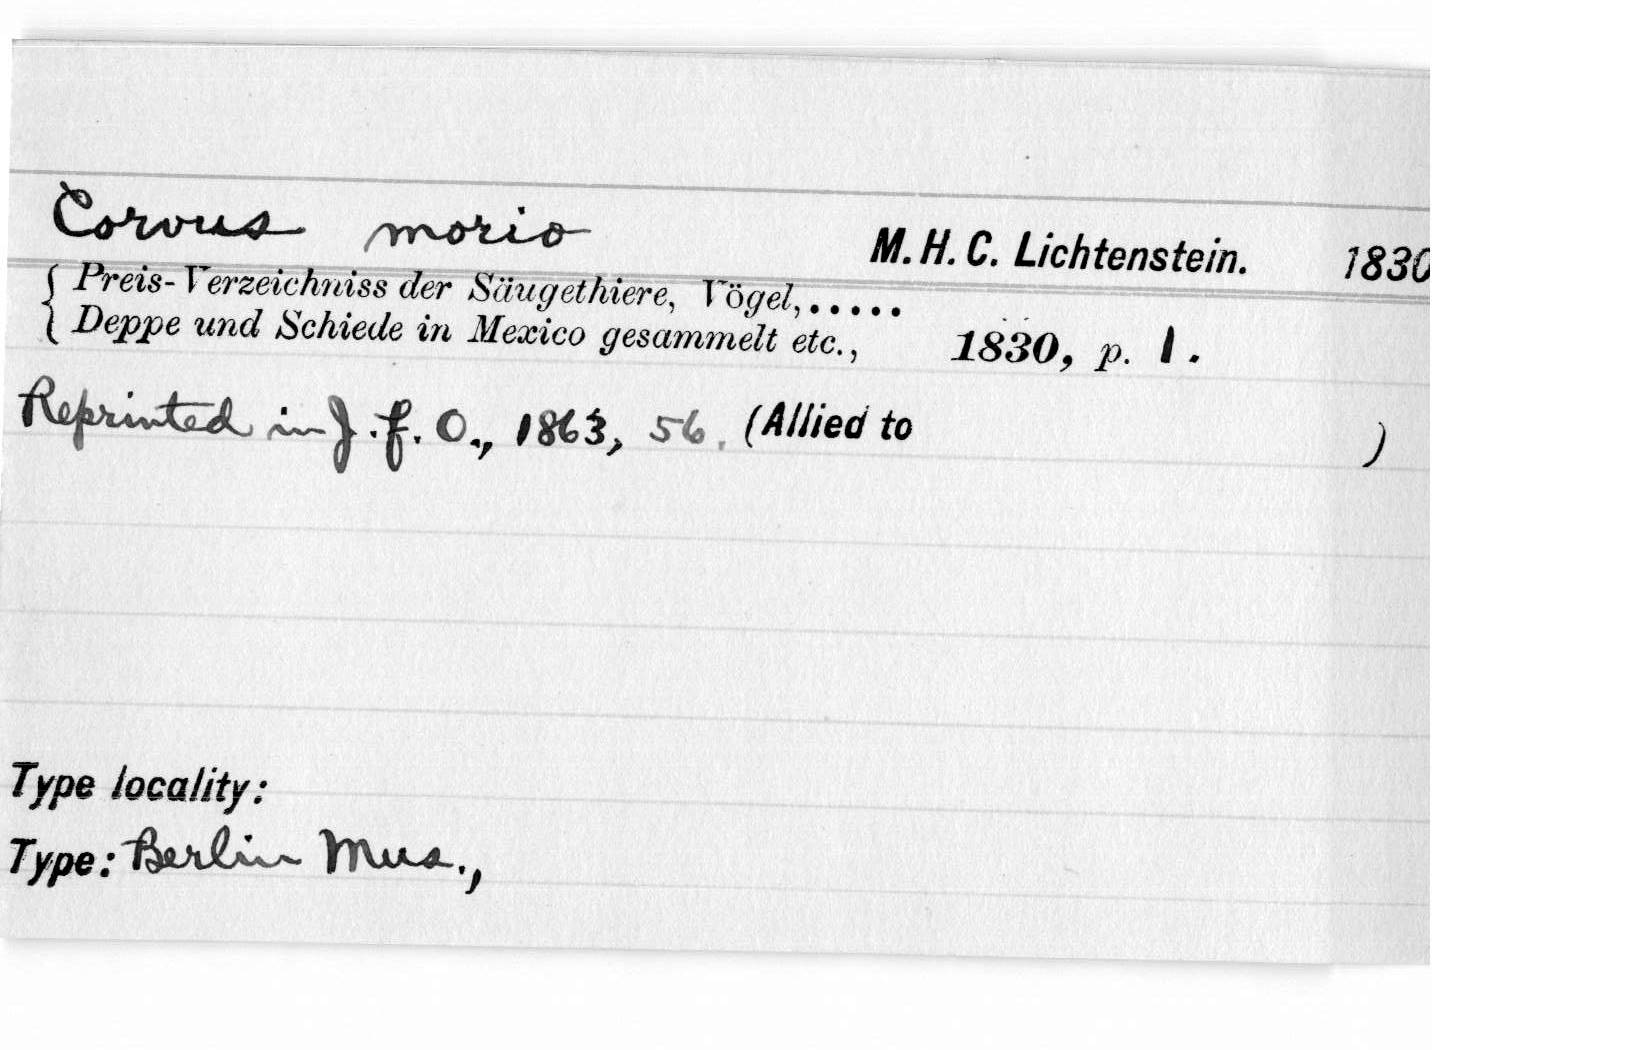 Corvus morio M. H. C. Lichtenstein. 1830
{ Preis-Verzeichniss der Säugethiere, Vögel,.....
{ Deppe und Schiede in Mexico gesammelt etc., 1830, p. 1.
Reprinted in J. f. O., 1863, 56. (Allied to )
Type locality:
Type: Berlin Mus.,